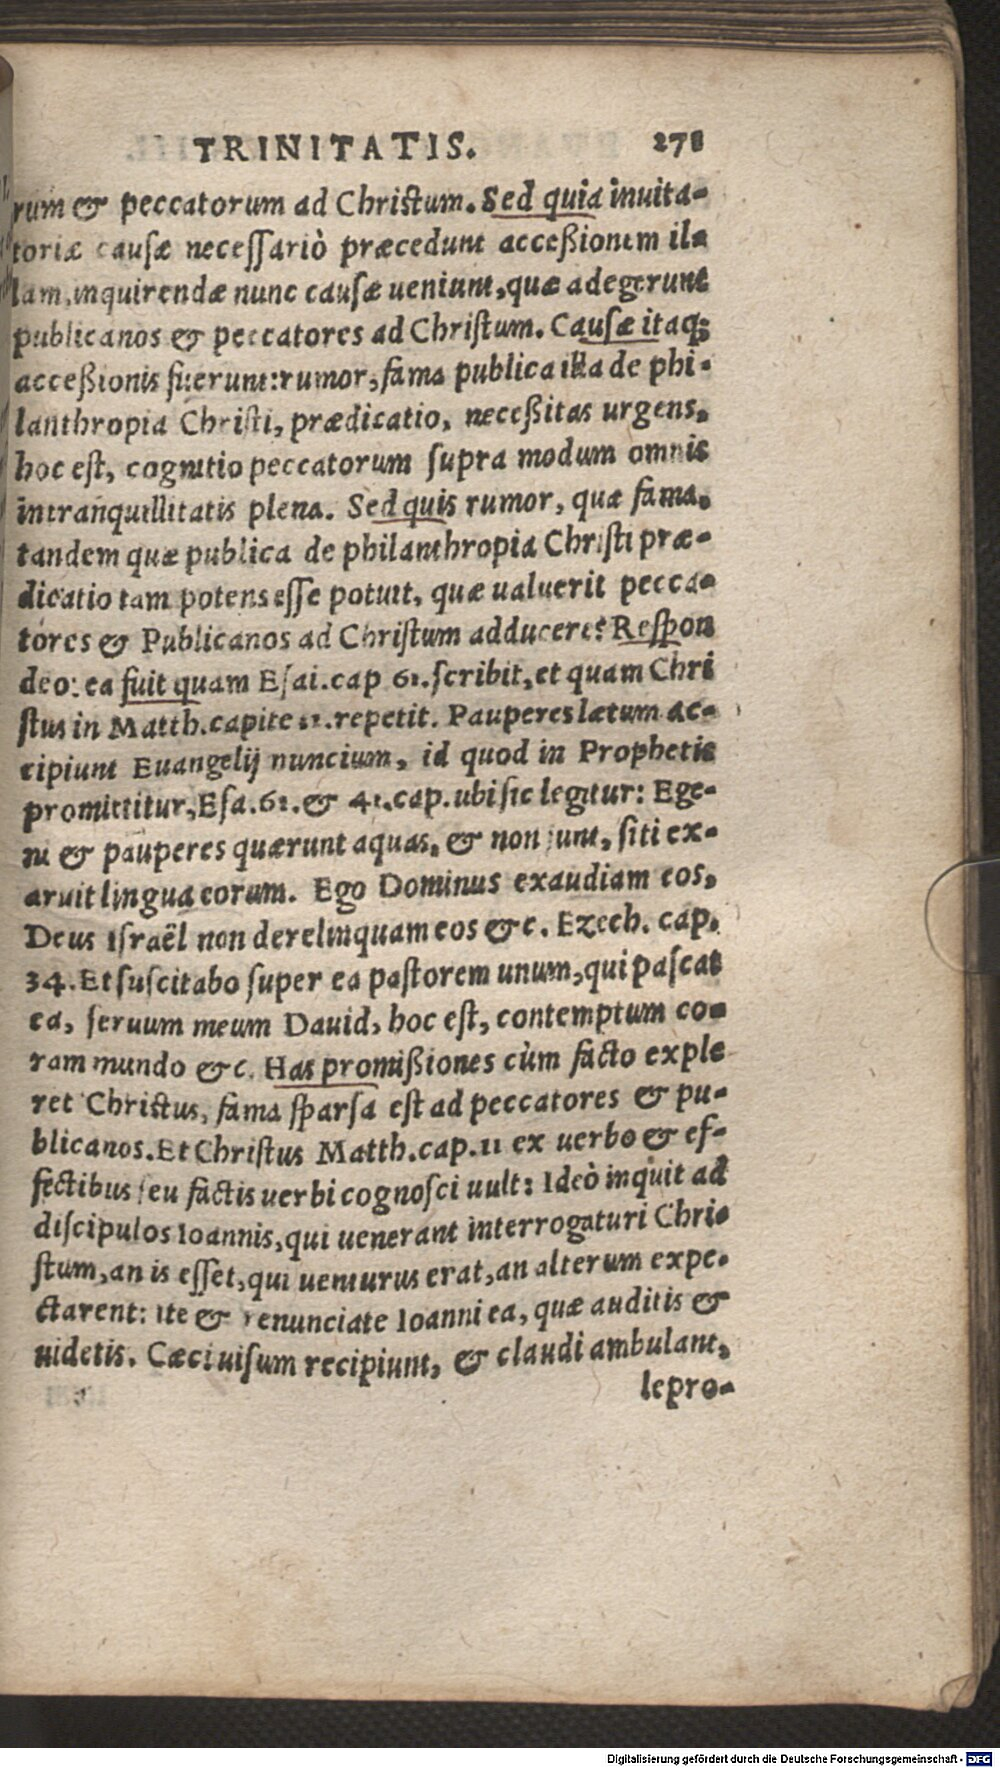 TRINITATIS. 271
rum & peccatorum ad Christum. Sed quia inuita-
toriæ causæ necessariò præcedunt accessionem il-
lam, inquirendæ nunc causæ ueniunt, quæ adegerunt
publicanos & peccatores ad Christum. Causæ itaq;
accessionis fuerunt: rumor, fama publica illa de phi-
lanthropia Christi, prædicatio, necessitas urgens,
hoc est, cognitio peccatorum supra modum omnis
intranquillitatis plena. Sed quis rumor, quæ fama,
tandem quæ publica de philanthropia Christi præ-
dicatio tam potens esse potuit, quæ ualuerit pecca-
tores & Publicanos ad Christum adducere? Respon
deo: ea fuit quam Esai. cap 61. scribit, et quam Chri
stus in Matth. capite 11. repetit. Pauperes lætum ac-
cipiunt Euangelij nuncium, id quod in Prophetis
promittitur, Esa. 61. & 41. cap. ubi sic legitur: Ege-
ni & pauperes quærunt aquas, & non sunt, siti ex-
aruit lingua eorum. Ego Dominus exaudiam eos,
Deus Israël non derelinquam eos &c. Ezech. cap.
34. Et suscitabo super ea pastorem unum, qui pascat
ea, seruum meum Dauid, hoc est, contemptum co-
ram mundo &c. Has promissiones cùm facto exple
ret Christus, fama sparsa est ad peccatores & pu-
blicanos. Et Christus Matth. cap. 11 ex uerbo & ef-
fectibus seu factis uerbi cognosci uult: Ideò inquit ad
discipulos Ioannis, qui uenerant interrogaturi Chri-
stum, an is esset, qui uenturus erat, an alterum expe-
ctarent: Ite & renunciate Ioanni ea, quæ auditis &
uidetis. Cæci uisum recipiunt, & claudi ambulant,
lepro-
Digitalisierung gefördert durch die Deutsche Forschungsgemeinschaft - DFG